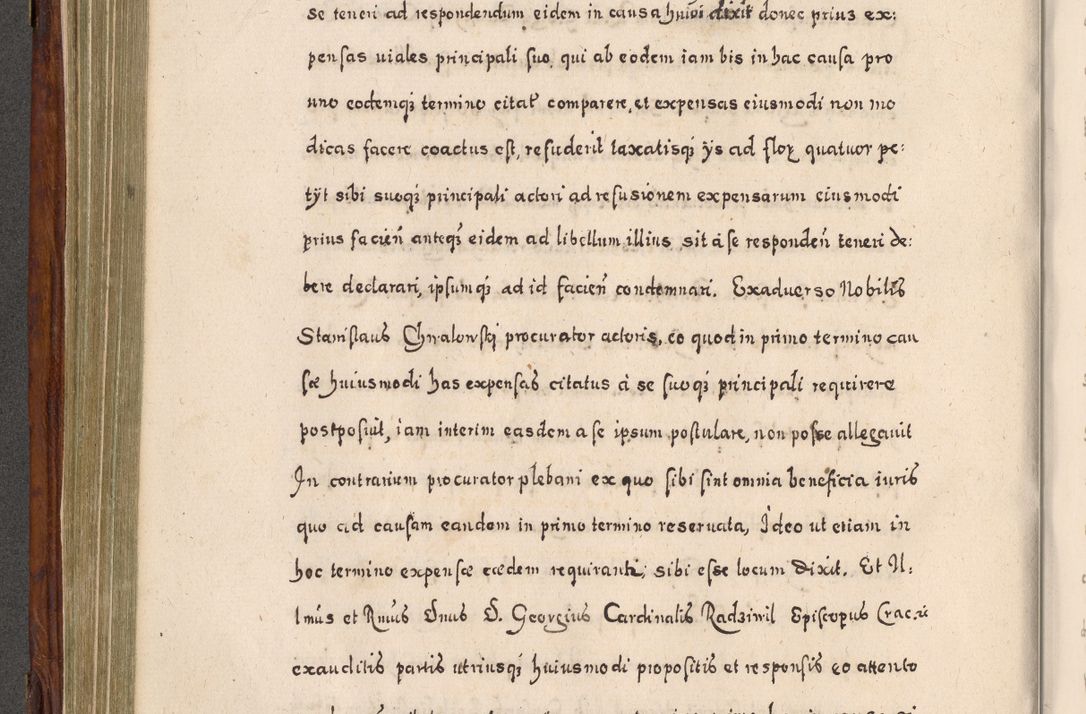 se teneri ad respondendum eidem in causa huiusmodi dixit donec prius ex:
pensas uiales principali suo, qui ab eodem iam bis in hac causa pro
uno eodemq₃ termino citat comparere, et expensas eiusmodi non mo
dicas facere coactus est, refuderit taxatisq₃ ijs ad flor quatuor pe:
tijt sibi suoq₃ principali actori ad refusionem expensarum eiusmodi
prius facien̄ anteq₃ eidem ad libellum illius sit à se responden̄ teneri de:
bere declarari, ipsumq₃ ad id facien̄ condemnari. Exaduerso Nobilis
Stanislaus Chwalowskj procurator actoris, eo quod in primo termino cau
sæ huiusmodi has expensas citatus à se suoq₃ principali requirere
postposuit, iam interim easdem a se ipsum postulare, non posse allegauit
In contrarium procurator plebani ex quo sibi sint omnia beneficia iuris
quo ad causam eandem in primo termino reseruata, Ideo ut etiam in
hoc termino expensæ eædem requirantur, sibi esse locum dixit. Et Il:
lmūs et Rmūs Dnus D. Georgius Cardinalis Radziwil Episcopus Crac:
exauditis partis utriusq₃ huiusmodi propositis et responsis eo attento